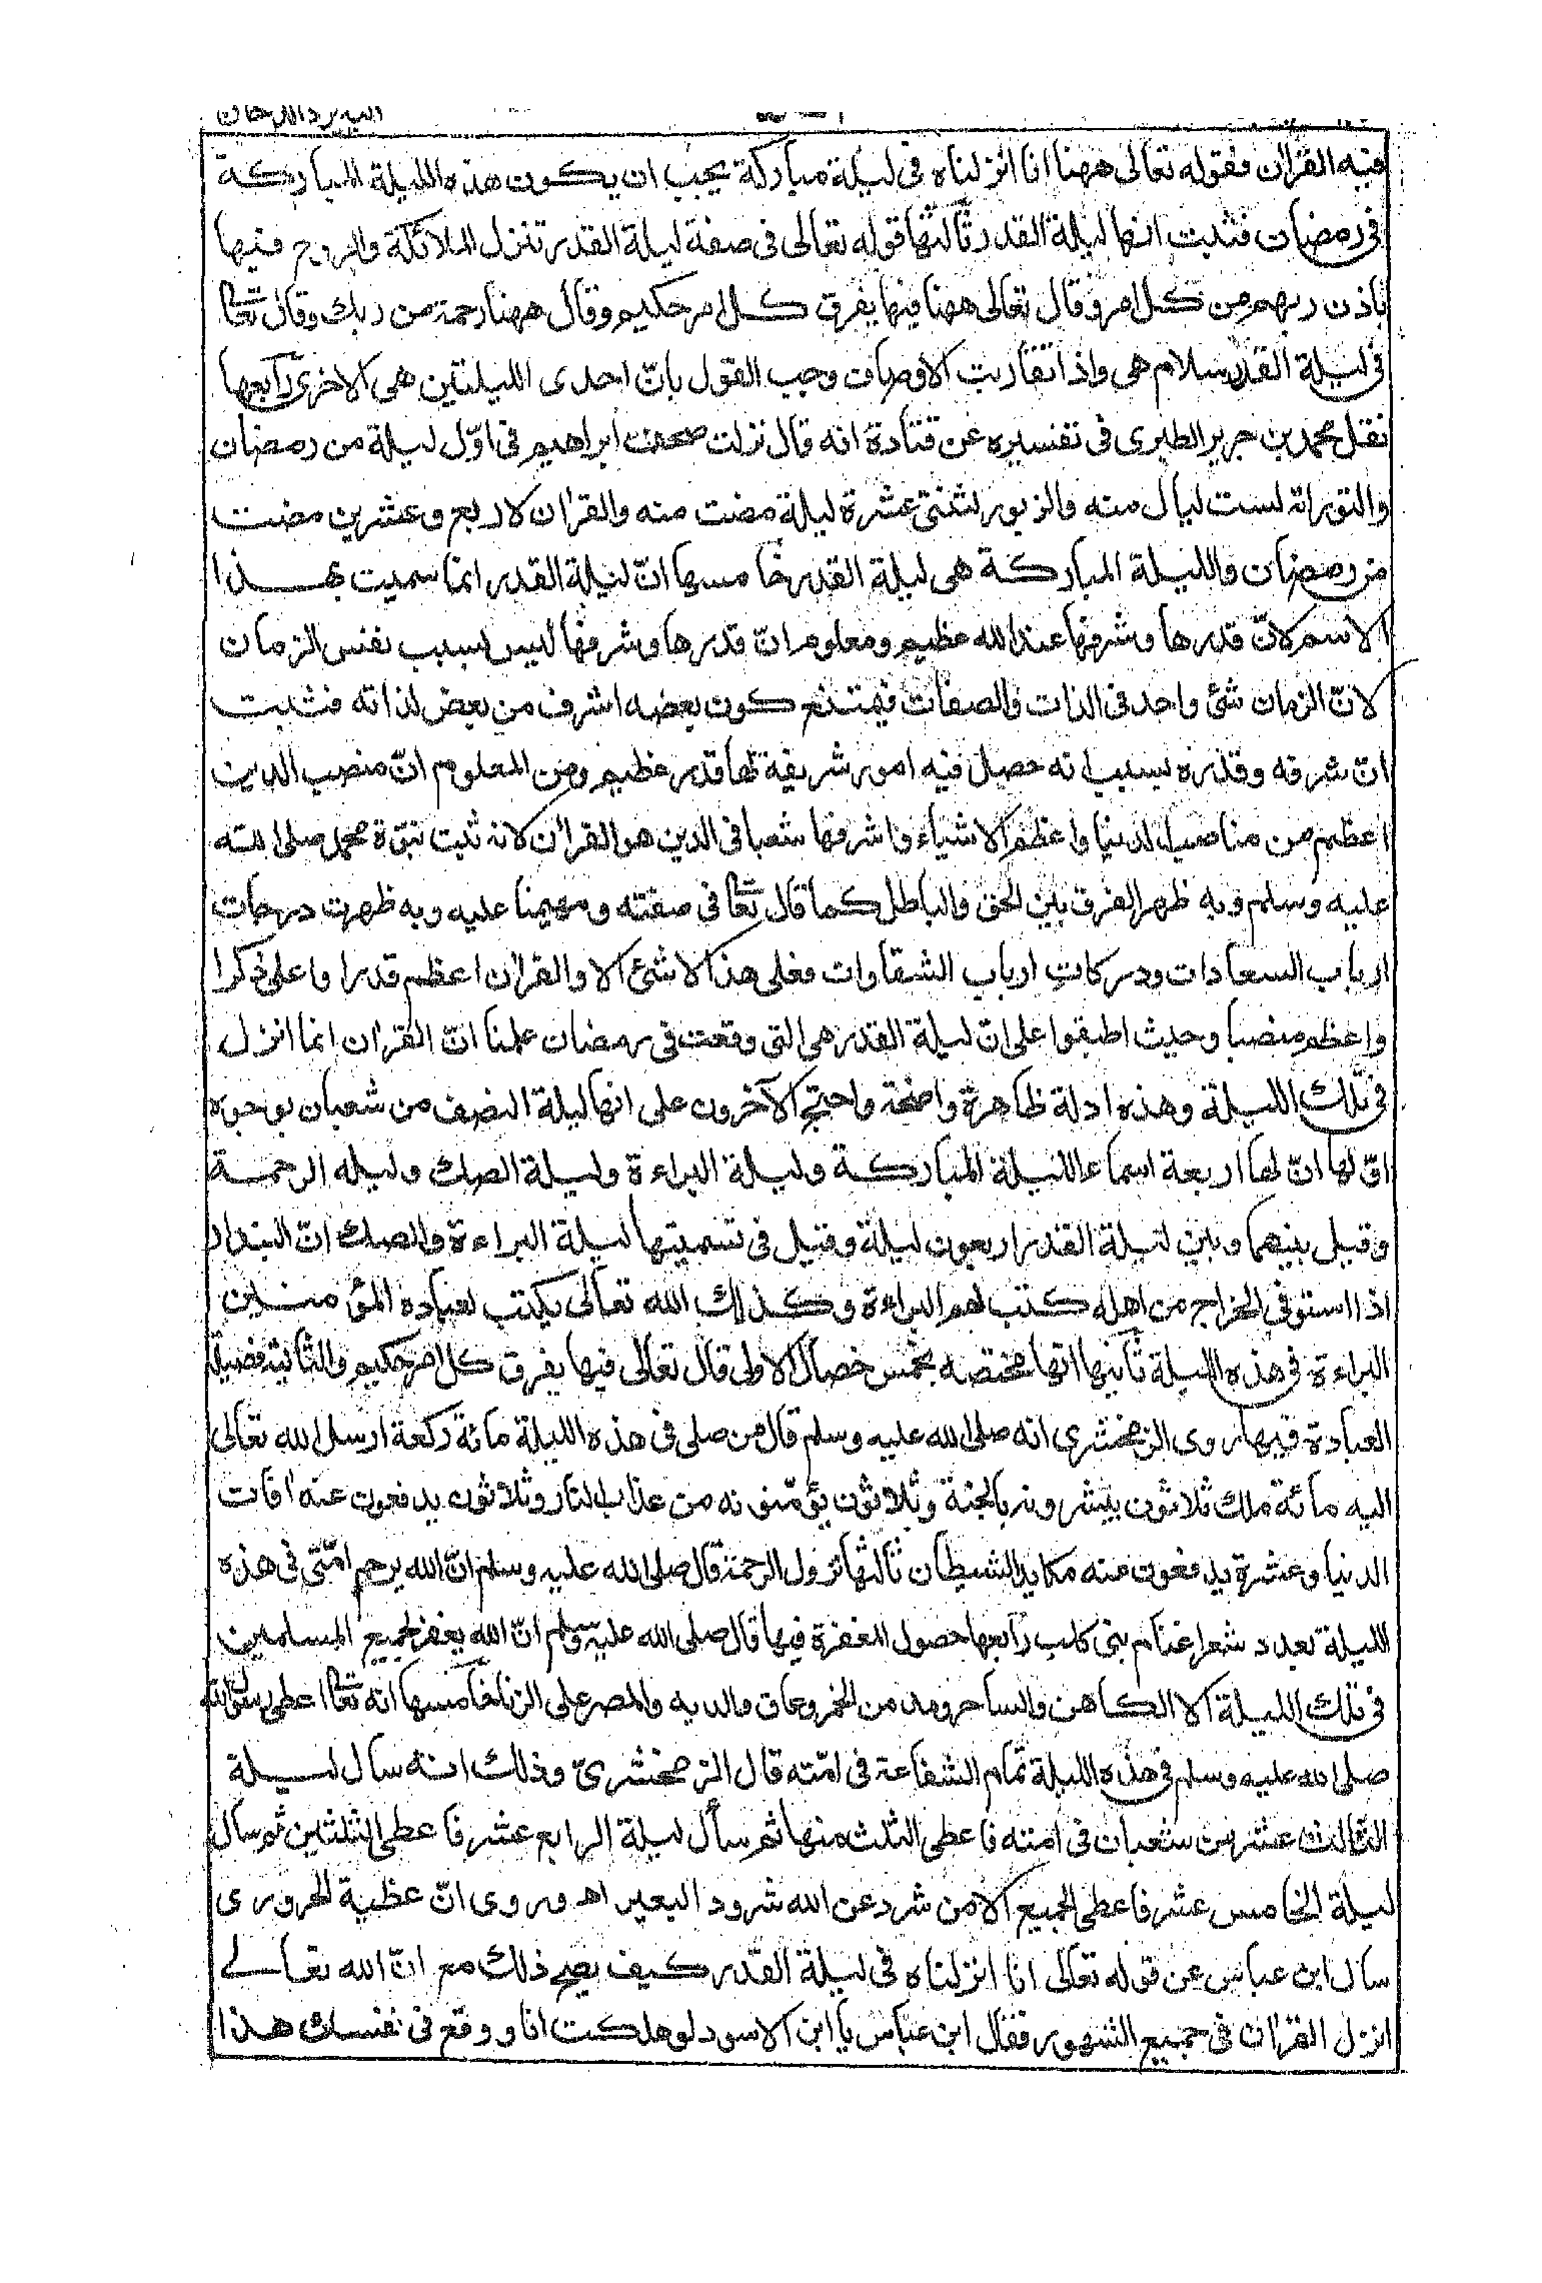 اليه يرد الدخان
فيه القران فقوله تعالى ههنا انا انزلناه فى ليلة مباركة يجب ان يكون هذه الليلة المباركة
فى رمضان فثبت انها ليلة القدر ثالثها قوله تعالى فى صفة ليلة القدر تنزل الملائكة والروح فيها
باذن ربهم من كل امر وقال تعالى ههنا فيها يفرق كل امر حكيم وقال ههنا رحمة من ربك وقال تعالى
فى ليلة القدر سلام هى واذا تقاربت الاوصاف وجب القول بانّ احدى الليلتين هى الاخرى رابعها
نقل محمد بن جرير الطبرى فى تفسيره عن قتادة انه قال نزلت صحف ابراهيم فى اوّل ليلة من رمضان
والتوراة لست ليال منه والزبور لثنتى عشرة ليلة مضت منه والقران لاربع وعشرين مضت
من رمضان والليلة المباركة هى ليلة القدر خامسها انّ ليلة القدر انما سميت بهذا
الاسم لانّ قدرها وشرفها عند الله عظيم ومعلوم انّ قدرها وشرفها ليس لسبب نفس الزمان
لانّ الزمان شئ واحد فى الذات والصفات فيمتنع كون بعضه اشرف من بعض لذاته فثبت
انّ شرفه وقدره بسبب انه حصل فيه امور شريفة لها قدر عظيم ومن المعلوم انّ منصب الدين
اعظم من مناصب الدنيا واعظم الاشياء واشرفها شعبا فى الدين هو القران لانه ثبت نبوّة محمد صلى الله
عليه وسلم وبه ظهر الفرق بين الحق والباطل كما قال تعالى فى صفته ومهيمنا عليه وبه ظهرت درجات
ارباب السعادات ودركات ارباب الشقاوات فعلى هذا لا شئ الا والقران اعظم قدرا واعلى ذكرا
واعظم منصبا وحيث اطبقوا على انّ ليلة القدر هى التى وقعت فى رمضان علمنا انّ القران انما انزل
فى تلك الليلة وهذه ادلة ظاهرة واضحة واحتج الآخرون على انها ليلة النصف من شعبان بوجوه
اوّلها انّ لها اربعة اسماء الليلة المباركة وليلة البراءة وليلة الصك وليلة الرحمة
وقيل بينهما وبين ليلة القدر اربعون ليلة وقيل فى تسميتها ليلة البراءة والصك انّ البندار
اذا استوفى الخراج من اهله كتب لهم البراءة وكذلك الله تعالى يكتب لعباده المؤمنين
البراءة فى هذه الليلة ثانيها انها مختصه بخمس خصال الاولى قال تعالى فيها يفرق كل امر حكيم والثانية فضيلة
العبادة فيها روى الزمخشرى انه صلى الله عليه وسلم قال من صلى فى هذه الليلة مائة ركعة ارسل الله تعالى
اليه مائة ملك ثلاثون يبشرونه بالجنة وثلاثون يؤمّنونه من عذاب النار وثلاثون يدفعون عنه آفات
الدنيا وعشرة يدفعون عنه مكايد الشيطان ثالثها نزول الرحمة قال صلى الله عليه وسلم انّ الله يرحم امّتى فى هذه
الليلة بعدد شعر اغنام بنى كلب رابعها حصول المغفرة فيها قال صلى الله عليه وسلم انّ الله يغفر لجميع المسلمين
فى تلك الليلة الا الكاهن والساحر ومدمن الخمر وعاق والديه والمصر على الزنا خامسها انه تعالى اعطى رسول الله
صلى الله عليه وسلم فى هذه الليلة تمام الشفاعة فى امّته قال الزمخشرىّ وذلك انه سال ليلة
الثالث عشر من شعبان فى امته فاعطى الثلث منها ثم سأل ليلة الرابع عشر فاعطى الثلثين ثم سأل
ليلة الخامس عشر فاعطى الجميع الا من شرد عن الله شرود البعير اهـ وروى انّ عطية الحرورى
سأل ابن عباس عن قوله تعالى انا انزلناه فى ليلة القدر كيف يصح ذلك مع انّ الله تعالى
انزل القران فى جميع الشهور فقال ابن عباس يا ابن الاسود لو هلكت انا ووقع فى نفسك هذا